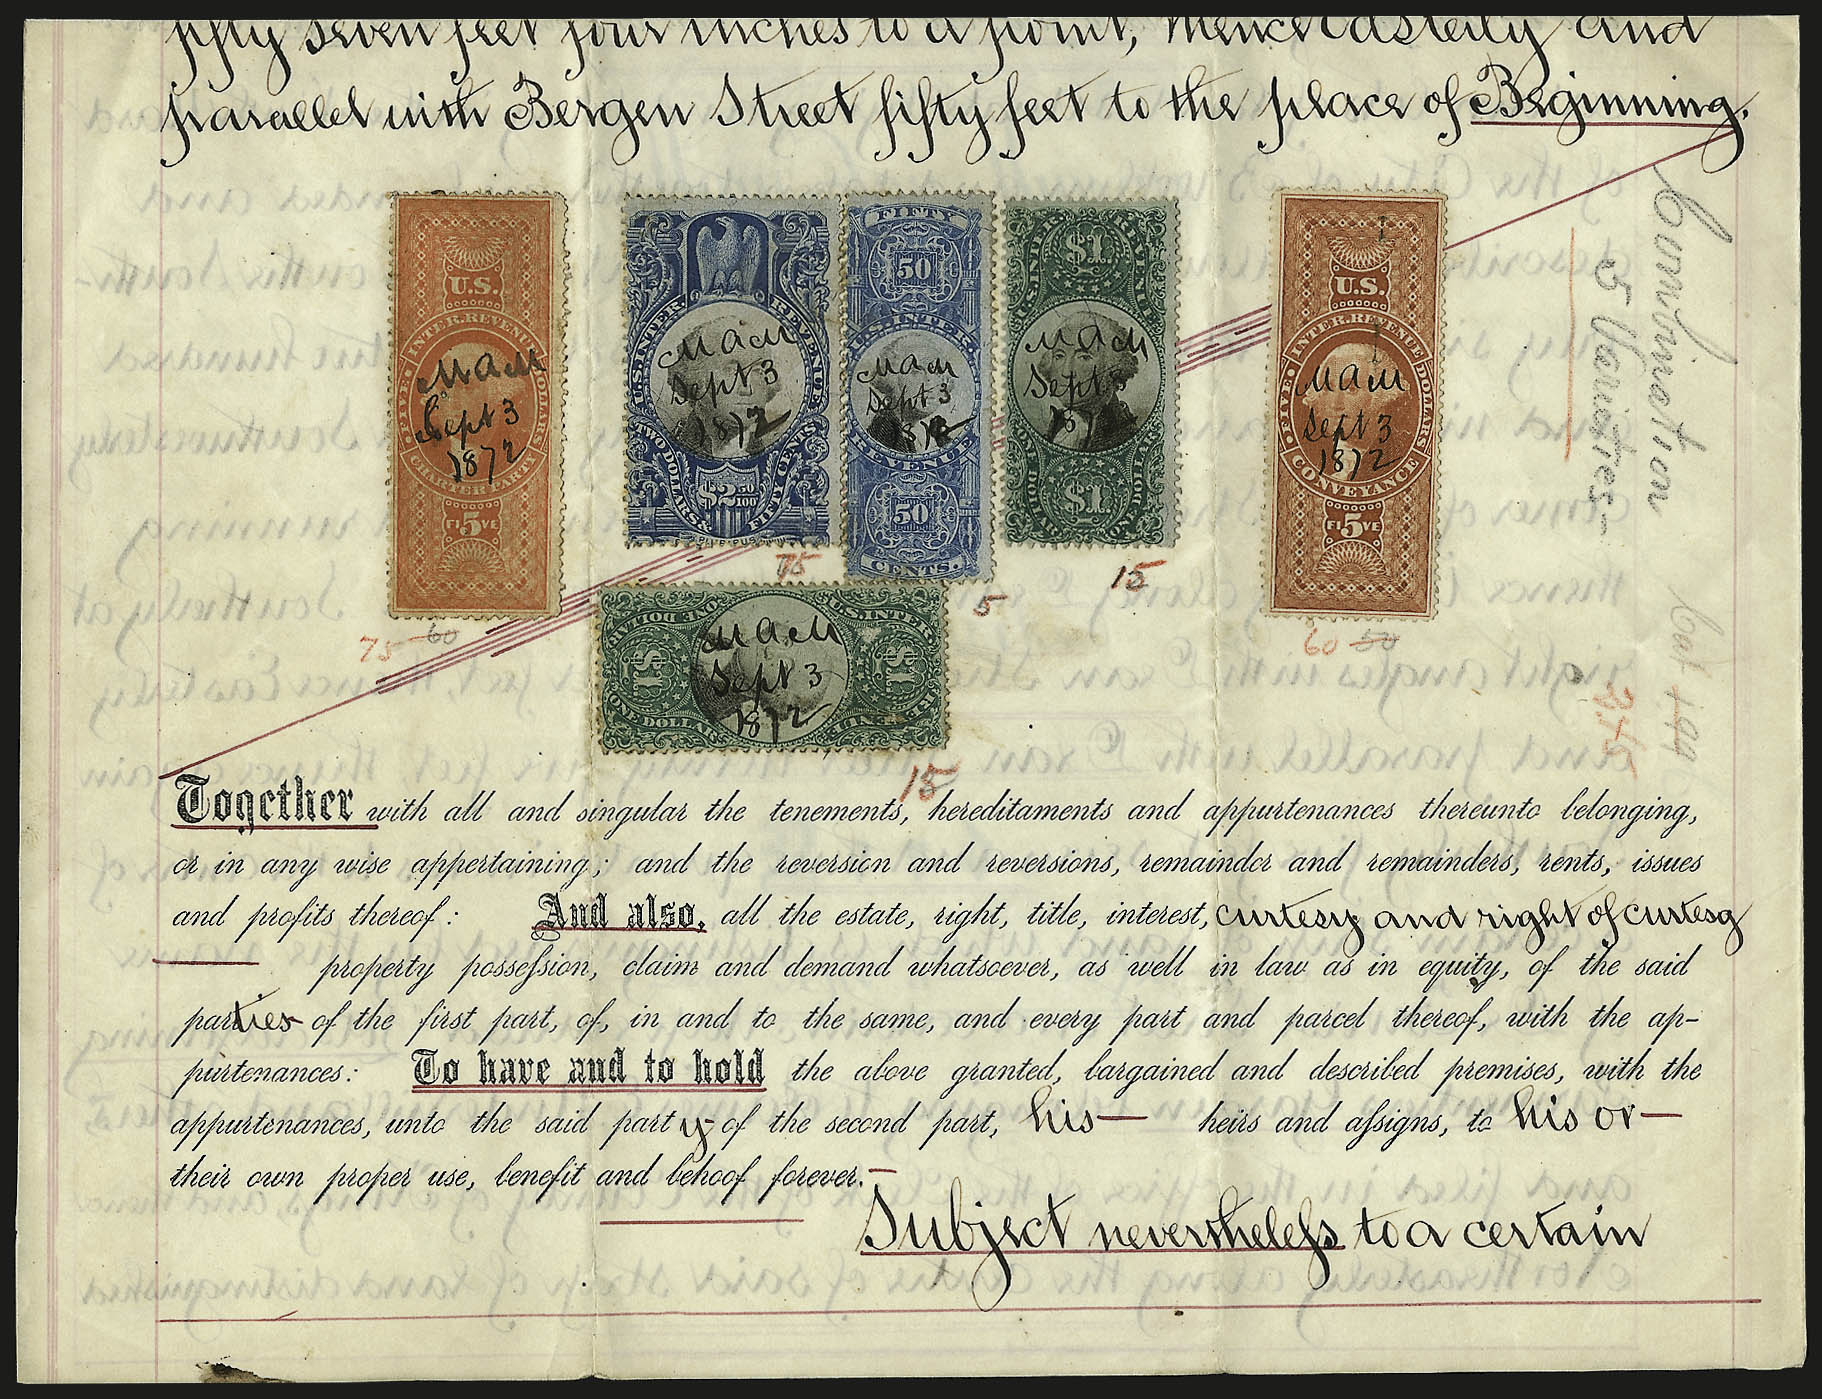 fifty seven feet four inches to a point, thence Easterly and
parallel with Bergen Street fifty feet to the place of Beginning.
U.S.
INTER. REVENUE
FIVE DOLLARS
CHARTER PARTY
FI5VE
M A M
Sept 3
1872
75 60
U.S. INTER. REVENUE
$2 50/100
TWO DOLLARS & FIFTY CENTS
M A M
Sept 3
1872
75
FIFTY
50
U.S. INTER.
REVENUE
50
CENTS.
M A M
Sept 3
1872
5
U.S. INTER. REVENUE
$1.
$1.
ONE DOLLAR
ONE DOLLAR
M A M
Sept 3
1872
15
U.S.
INTER. REVENUE
FIVE DOLLARS
CONVEYANCE
FI5VE
M A M
Sept 3
1872
60 50
U.S. INTER. REVENUE
$1
$1
ONE DOLLAR
ONE DOLLAR
M A M
Sept 3
1872
15
Combination
5 Varieties
Together with all and singular the tenements, hereditaments and appurtenances thereunto belonging,
or in any wise appertaining; and the reversion and reversions, remainder and remainders, rents, issues
and profits thereof: And also, all the estate, right, title, interest, curtesy and right of curtesy
property possession, claim and demand whatsoever, as well in law as in equity, of the said
parties of the first part, of, in and to the same, and every part and parcel thereof, with the ap-
purtenances: To have and to hold the above granted, bargained and described premises, with the
appurtenances, unto the said party of the second part, his heirs and assigns, to his or
their own proper use, benefit and behoof forever.
Subject nevertheless to a certain